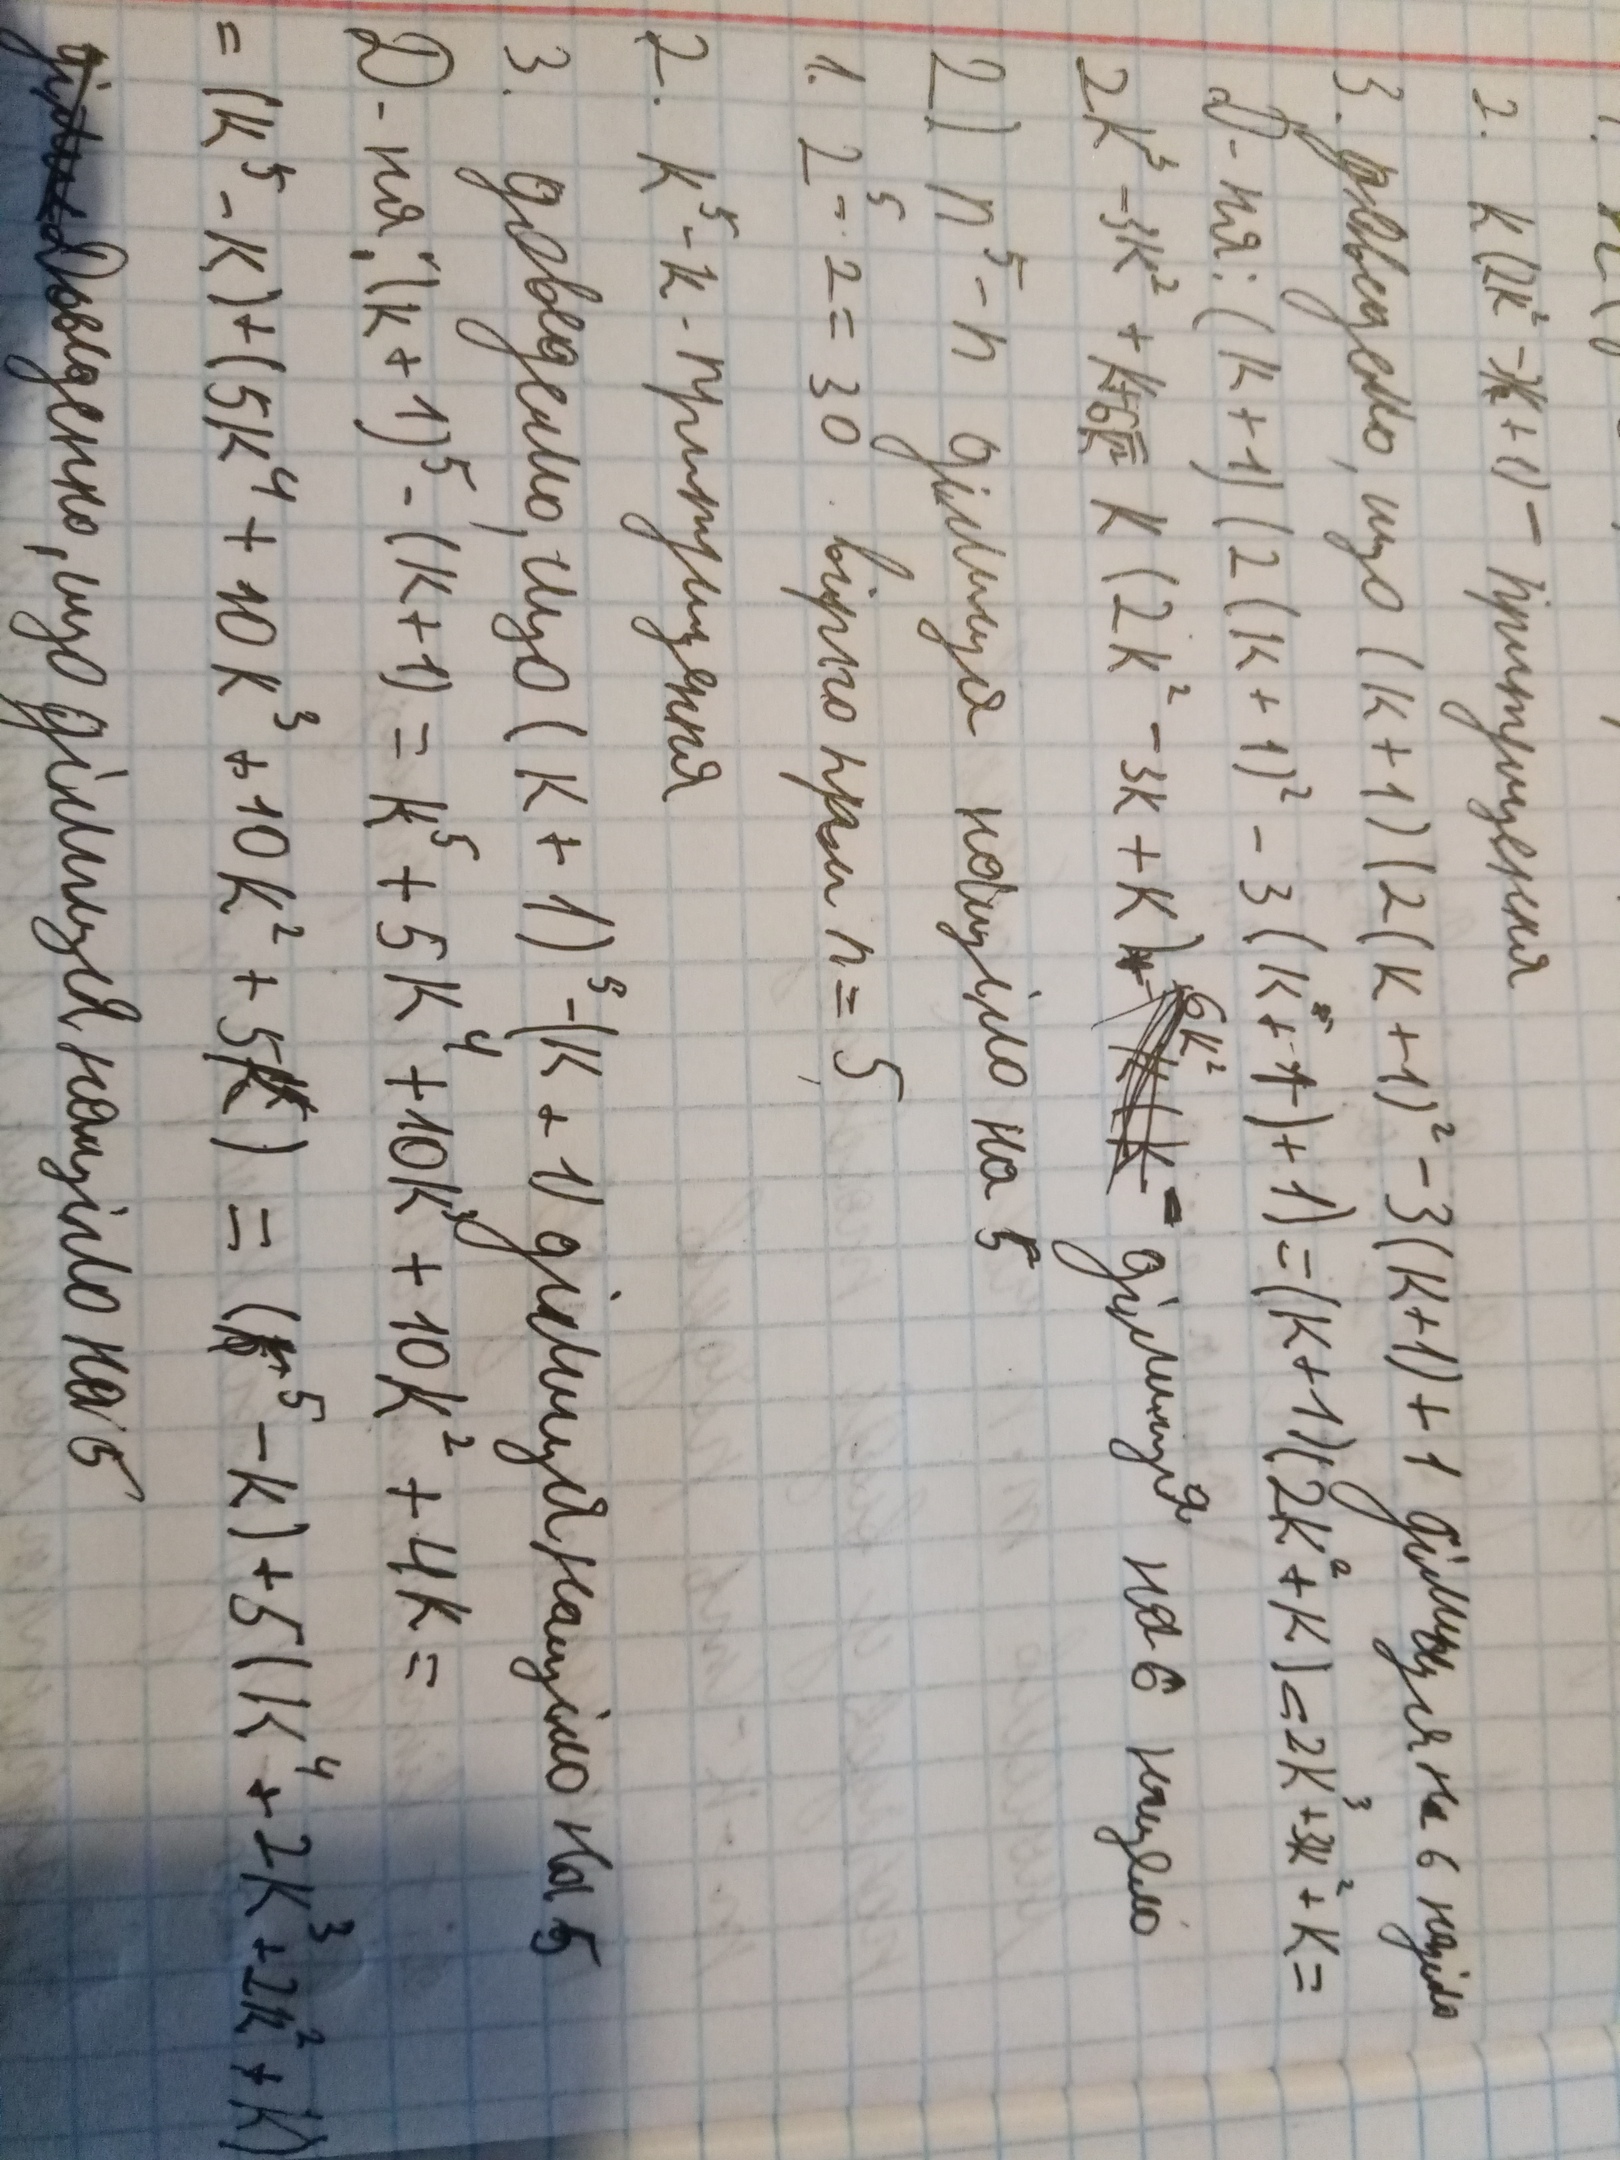 2. K(2K² - 3K + 1) - припущення
3. доведемо, що (K+1)(2(K+1)² - 3(K+1) + 1 ділиться на 6 націло
Д-ня: (K+1)(2(K+1)² - 3(K+1)+1) = (K+1)(2K²+K) = 2K³+3K²+K =
2K³ - 3K² + K+6K² = K(2K² - 3K + K) + 6K² - ділиця на 6 нацело
2) n⁵ - n ділиця націло на 5
1. 2⁵ - 2 = 30 вірно при n = 5
2. K⁵ - K - припущення
3. доведемо, що (K+1)⁵ - (K+1) ділиця націло на 5
Д-ня: (K+1)⁵ - (K+1) = K⁵ + 5K⁴ + 10K³ + 10K² + 4K =
= (K⁵ - K) + (5K⁴ + 10K³ + 10K² + 5K) = (K⁵ - K) + 5(K⁴ + 2K³ + 2K² + K)
Доведенно, що ділиця націло на 5